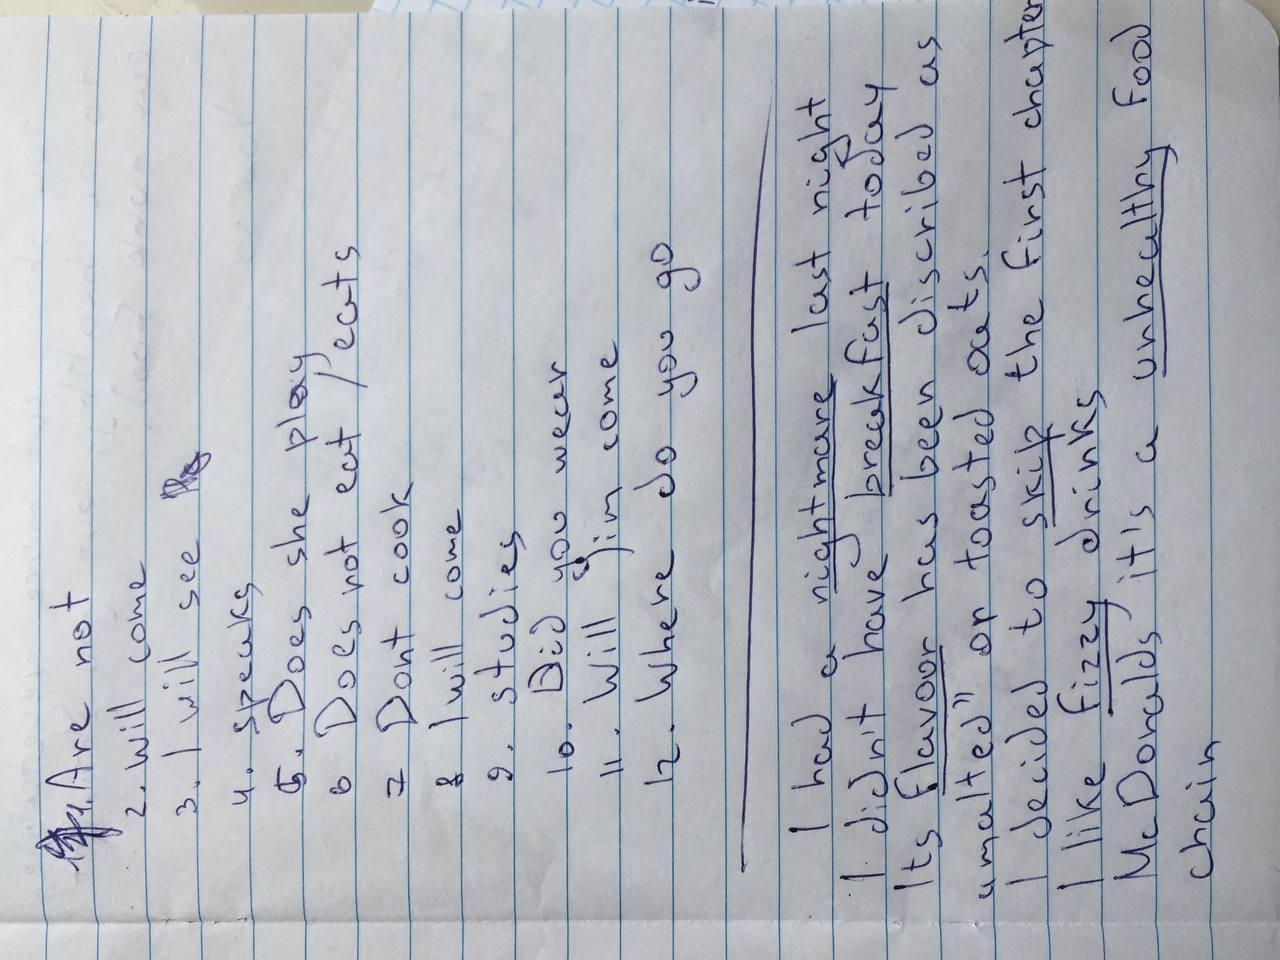 1. Are not
2. will come
3. I will see
4. speaks
5. Does she play
6 Does not eat / eats
7 Dont cook
8 I will come
9. studies
10. Did you wear
11. Will jim come
12. Where do you go
I had a nightmare last night
I didn't have breakfast today
Its flavour has been discribed as
„malted" or toasted oats.
I decided to skip the first chapter
I like fizzy drinks
McDonalds it's a unhealthy food
chain